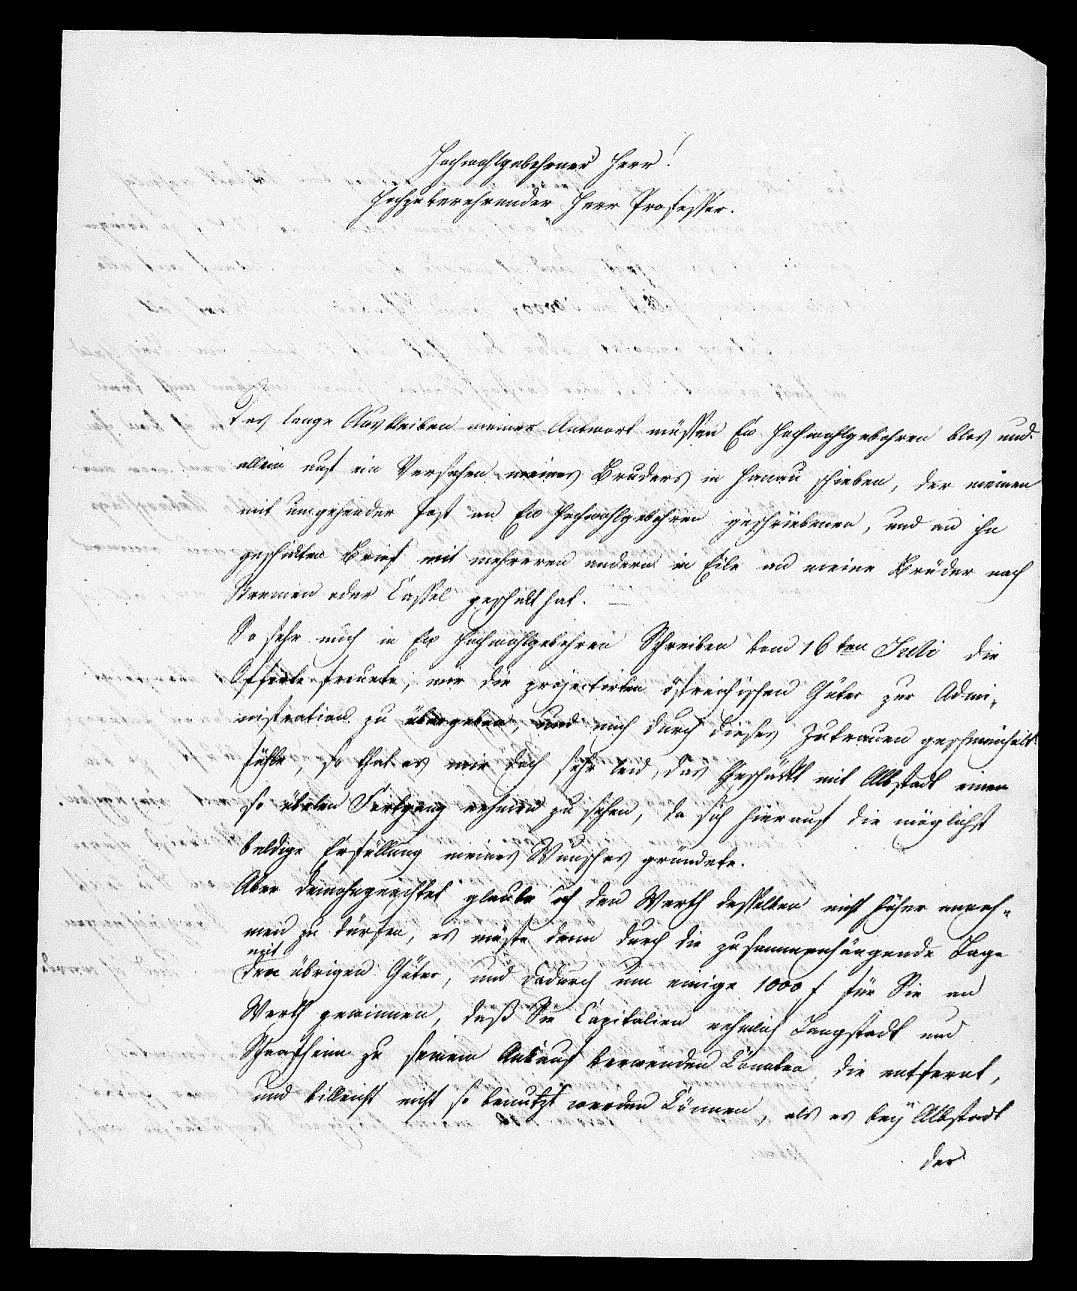 Hochwohlgebohrner Herr!
Hochzuverehrender Herr Professor.
Das lange Ausbleiben meiner Antwort müssen Ew Hochwohlgebohren blos und
allein auf ein Versehen meines Bruders in Hanau schieben, der meinen
mit umgehender Post an Ew Hochwohlgebohren geschriebenen, und an ihn
geschikten Brief mit mehreren andern in Eile an meine Brüder nach
Bremen oder Cassel geschikt hat. —
So sehr mich in Ew Hochwohlgebohren Schreiben vom 16ten Juli die
Offerte freuete, mir die projectirten östreichischen Güter zur Admi-
nistration zu übergeben, und mich durch dieses Zutrauen geschmeichelt
fühle, so that es mir doch sehr leid, das Geschäft mit Albstadt einen
so üblen Fortgang nehmen zu sehen, da sich hierauf die möglichst
baldige Erfüllung meines Wunsches gründete.
Aber demohngeachtet glaube ich den Werth desselben nicht höher anneh-
men zu dürfen, es müste denn durch die zusammenhängende Lage
mit
den übrigen Güter, und dadurch um einige 1000 f für Sie an
Werth gewinnen, daß Sie Capitalien nehmlich Langstadt und
Schafheim zu seinem Ankauf verwenden könnten, die entfernt,
und vielleicht nicht so benutzt werden können, als es bey Albstadt
der